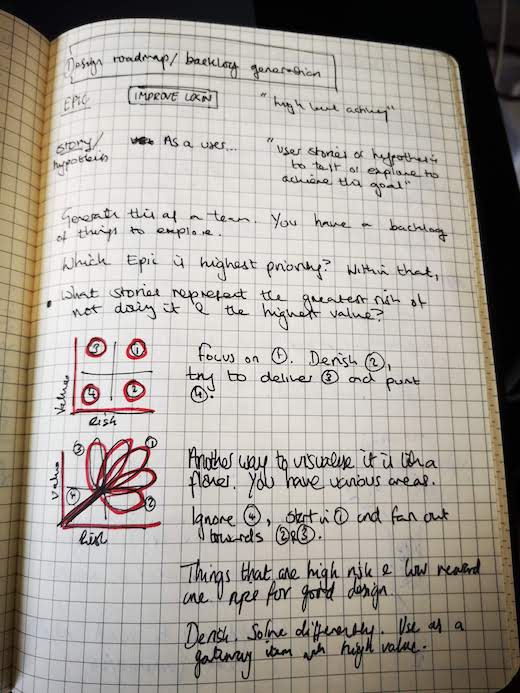 Design roadmap/ backlog generation
EPIC IMPROVE LOGIN "high level activity"
story/ As a user... "User stories or hypothesis
hypothesis to test or explore to
achieve this goal"
Generate this as a team. You have a backlog
of things to explore.
Which Epic is highest priority? Within that,
• What stories represent the greatest risk of
not doing it & the highest value?
3 1
4 2
Value
Risk
Focus on 1. Derisk 2,
try to deliver 3 and punt
4.
3 1
4 2
Value
Risk
Another way to visualise it is like a
flower. You have various areas.
Ignore 4, start in 1 and fan out
towards 2 & 3.
Things that are high risk & low reward
are ripe for good design.
Derisk. Solve differently. Use as a
gateway item with high value.